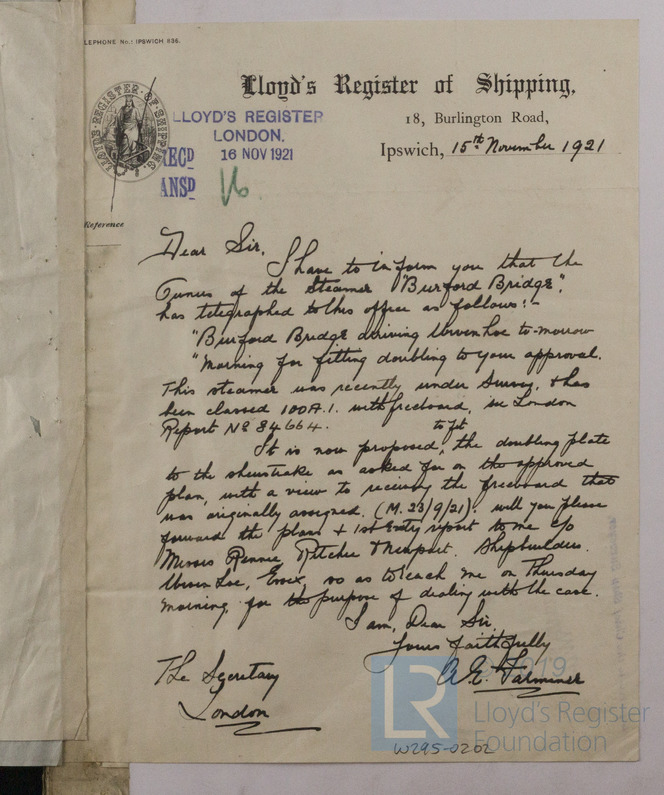 LEPHONE No.: IPSWICH 836.
Lloyd's Register of Shipping,
18, Burlington Road,
Ipswich, 15th November 1921
LLOYD'S REGISTER OF SHIPPING
LLOYD'S REGISTER
LONDON.
RECD 16 NOV 1921
ANSD
Reference
Dear Sir,
I have to inform you that the
Owners of the Steamer "Burford Bridge",
has telegraphed to this office as follows:-
"Burford Bridge arriving Wivenhoe to-morrow
"morning for fitting doubling to your approval.
This steamer was recently under Survey, & has
been classed 100A.1. with freeboard, see London
Report No 84664.
It is now proposed, to fit the doubling plate
to the sheerstrake as asked for on the approved
plan, with a view to receiving the freeboard that
was originally assigned. (M. 23/9/21). will you please
forward the plans & 1st Entry report to me c/o
Messrs Rennie Ritchie & Newport. Shipbuilders.
Wivenhoe, Essex, so as to reach me on Thursday
morning, for the purpose of dealing with the case.
I am, Dear Sir,
Yours faithfully
A.E. Farminer
The Secretary
London
©2019
LR
Lloyd's Register
Foundation
W295-0202